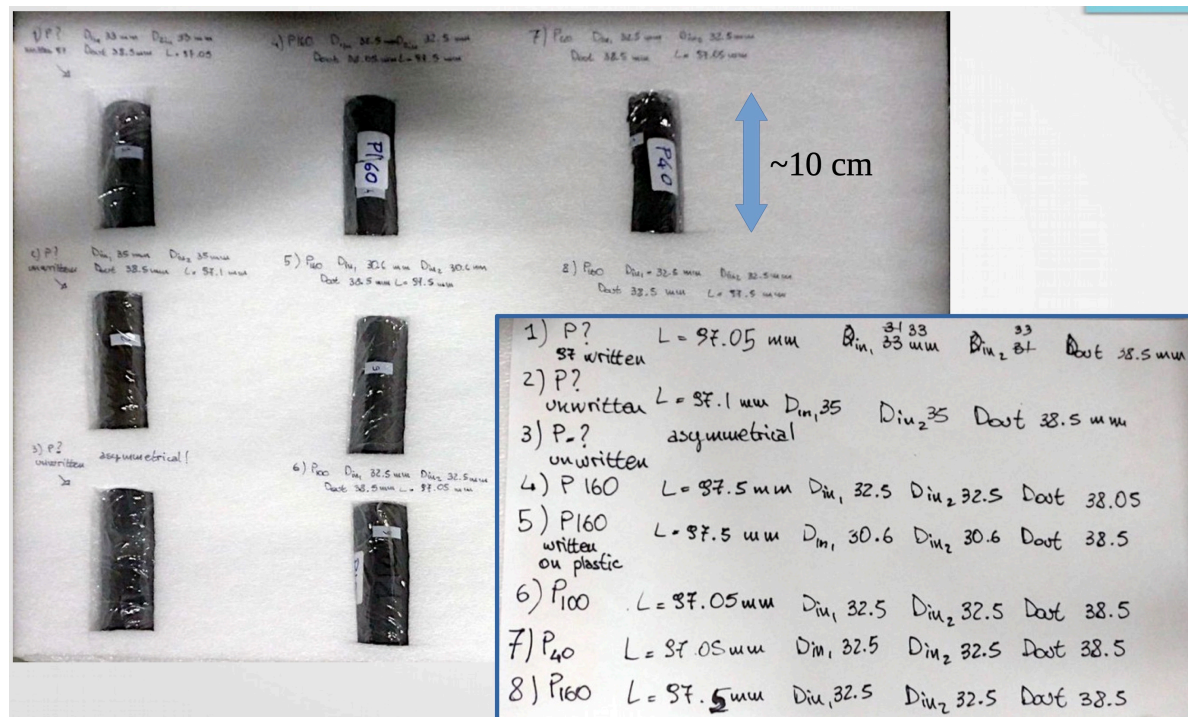 1) P? Din₁ 33 mm Din₂ 33 mm
written 97 Dout 38.5mm L= 97.05
4) P160 Din₁ 32.5 mm Din₂ 32.5 mm
Dout 38.05 mm L= 97.5 mm
7) P40 Din₁ 32.5 mm Din₂ 32.5 mm
Dout 38.5 mm L= 97.05 mm
P160
P40
~10 cm
2) P? Din₁ 35 mm Din₂ 35mm
unwritten Dout 38.5mm L= 97.1 mm
5) P160 Din₁ 30.6 mm Din₂ 30.6 mm
Dout 38.5 mm L= 97.5 mm
8) P160 Din₁ = 32.5 mm Din₂ 32.5 mm
Dout 38.5 mm L= 97.5 mm
5
3) P-? asymmetrical!
unwritten
6) P100 Din₁ 32.5 mm Din₂ 32.5 mm
Dout 38.5mm L= 97.05 mm
1) P? L = 97.05 mm Din₁ 31 33 33 mm Din₂ 33 31 Dout 38.5 mm
97 written
2) P?
unwritten L= 97.1 mm Din₁ 35 Din₂ 35 Dout 38.5 mm
3) P-? asymmetrical
unwritten
4) P 160 L= 97.5 mm Din₁ 32.5 Din₂ 32.5 Dout 38.05
5) P160 L= 97.5 mm Din₁ 30.6 Din₂ 30.6 Dout 38.5
written
on plastic
6) P100 L= 97.05mm Din₁ 32.5 Din₂ 32.5 Dout 38.5
7) P40 L= 97.05mm Din₁ 32.5 Din₂ 32.5 Dout 38.5
8) P160 L= 97.5mm Din₁ 32.5 Din₂ 32.5 Dout 38.5